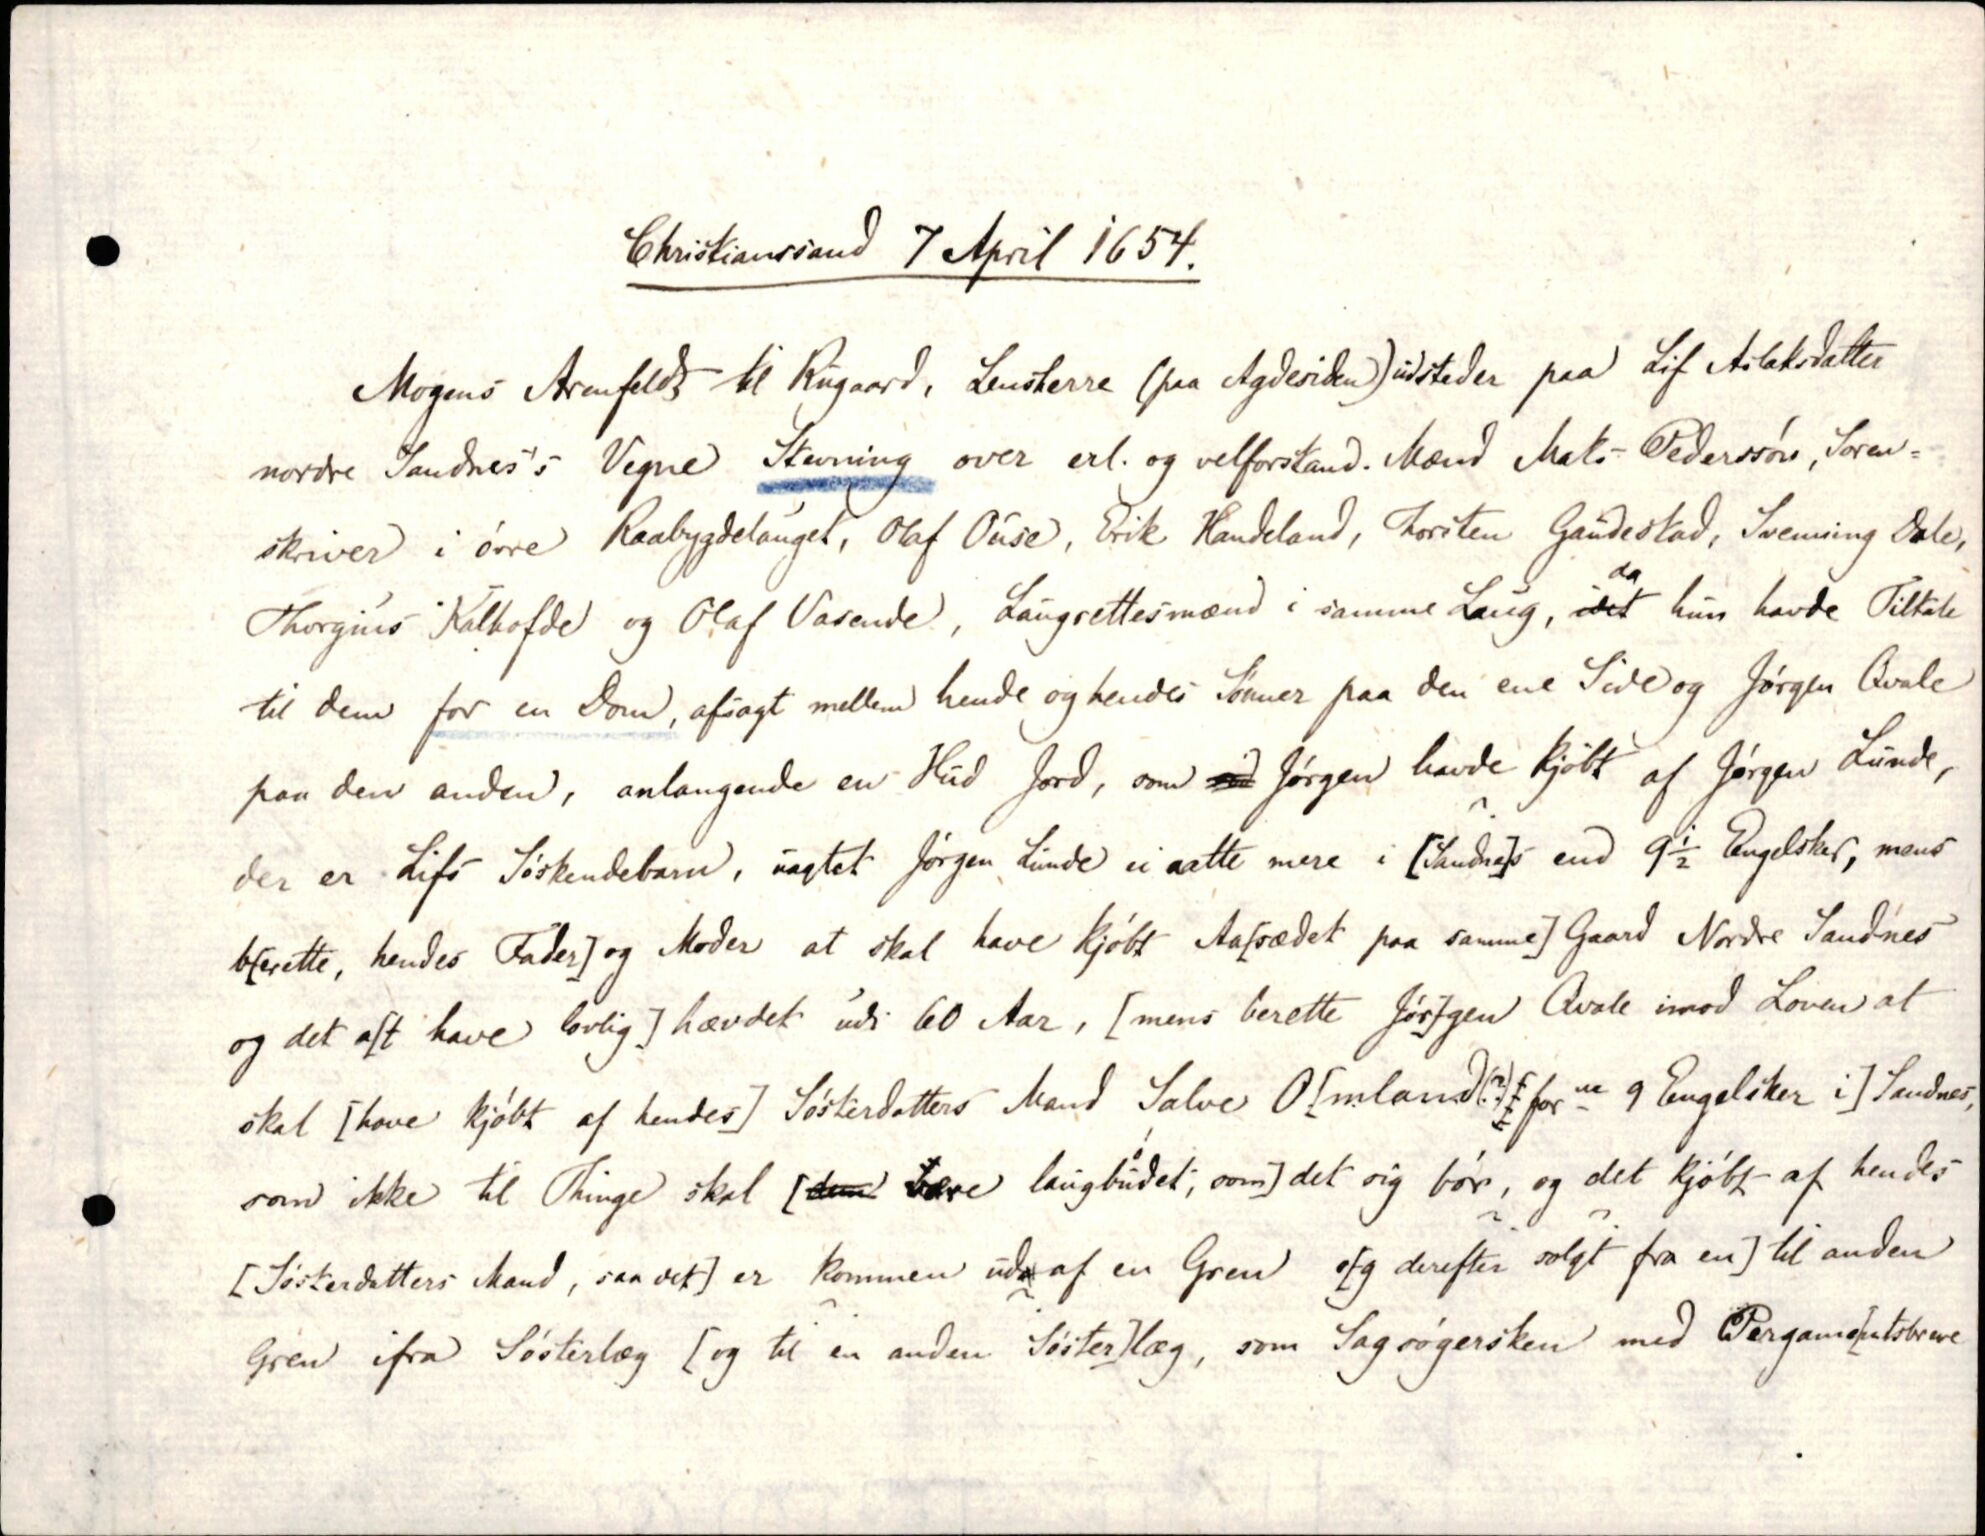 Christianssand 7 April 1654.
Mogens Arenfeldt til Rugaard, Lensherre (paa Agdesiden) udsteder paa Lif Aslaksdatter
nordre Sandnes's Vegne Stevning over erl. og velforstand. Mænd Maks Pederssøn, Soren=
skriver i øvre Raabygdelauget, Olaf Ouse, Erik Handeland, Thorsten Gaudestad, Svenning Dale,
Thorgius Kalhofde og Olaf Vasende, Laugrettesmænd i samme Laug, da hun havde Tiltale
til dem for en Dom, afsagt mellem hende og hendes Sønner paa den ene Side og Jørgen Qvale
paa den anden, anlangende en Hud Jord, som Jørgen havde kjøbt af Jørgen Lunde,
der er Lifs Søskendebarn, uagtet Jørgen Lunde ei aatte mere i [Sandne]s end 9½ Engelsker, mens
b[erette, hendes Fader] og Moder at skal have kjøbt Aa[sædet paa samme] Gaard Nordre Sandnes
og det a[t have lovlig] hævdet udi 60 Aar, [mens berette Jør]gen Qvale imod Loven at
skal [have kjøbt af hendes] Søsterdatters Mand Salve O[mland(?) for ne 9 Engelsker i] Sandnes,
som ikke til Thinge skal [være laugbudet, som] det sig bør, og det kjøbt af hendes
[Søsterdatters Mand, saa det] er kommen ud af en Gren o[g derefter solgt fra en] til anden
Gren ifra Søsterlæg [og til en anden Søster]læg, som Sagsøgersken med Pergame[ntsbreve